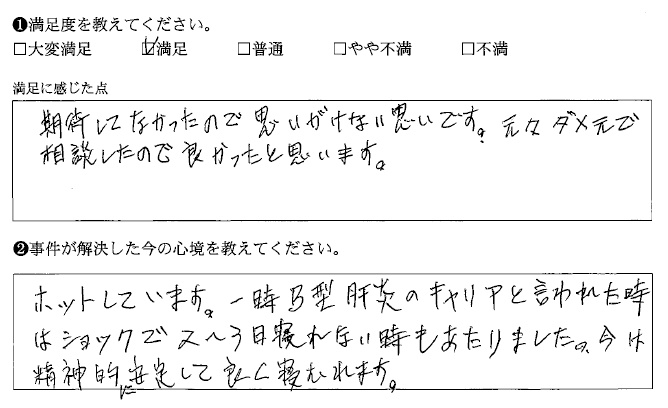 ❶満足度を教えてください。
□大変満足 ☑満足 □普通 □やや不満 □不満
満足に感じた点
期待してなかったので思いがけない思いです。元々ダメ元で
相談したので良かったと思います。
❷事件が解決した今の心境を教えてください。
ホットしています。一時B型肝炎のキャリアと言われた時
はショックで2〜3日寝れない時もあたりました。今は
精神的に安定して良く寝むれます。